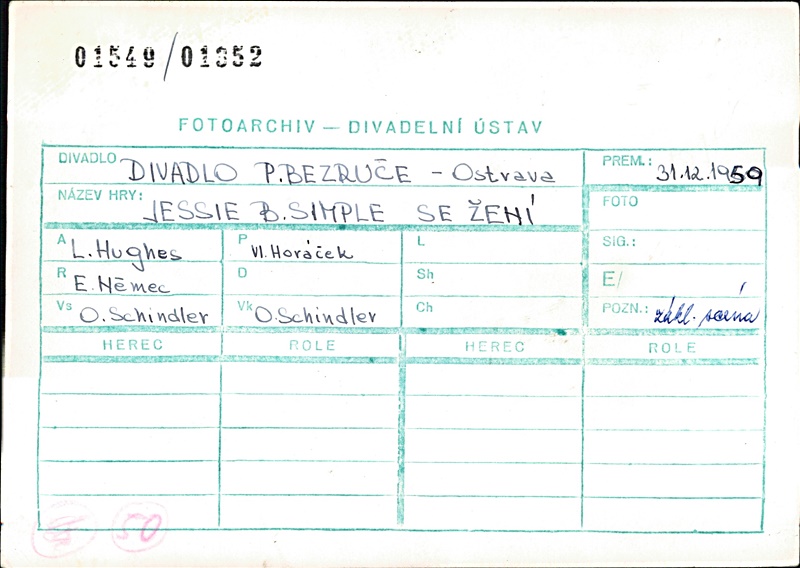 01549/01352
FOTOARCHIV — DIVADELNÍ ÚSTAV
DIVADLO DIVADLO P.BEZRUČE - Ostrava
PREM.: 31.12.1959
NÁZEV HRY: JESSIE B.SIMPLE SE ŽENÍ
FOTO
A L.Hughes
P Vl.Horáček
L
SIG.:
R E.Němec
D
Sh
E/
Vs O.Schindler
Vk O.Schindler
Ch
POZN.: zákl. scéna
HEREC ROLE HEREC ROLE
50